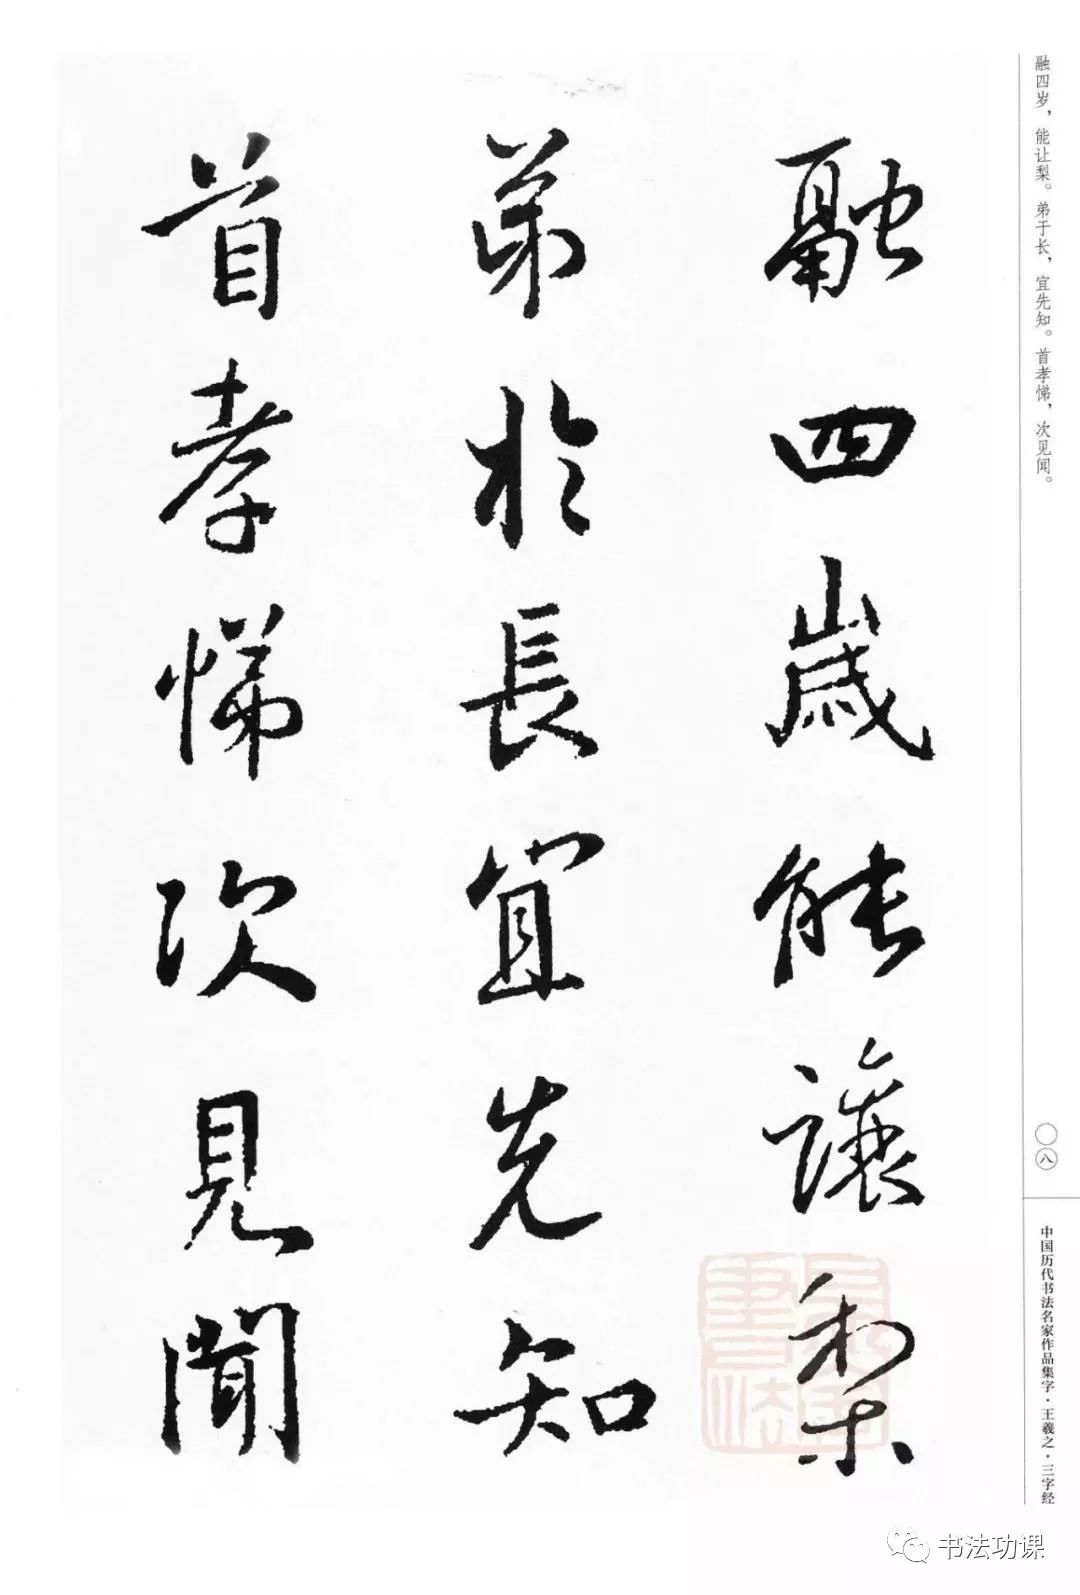 融四歲能讓梨
弟於長宜先知
首孝悌次見聞
融四岁，能让梨。弟于长，宜先知。首孝悌，次见闻。
〇八
中国历代书法名家作品集字·王羲之·三字经
书法功课